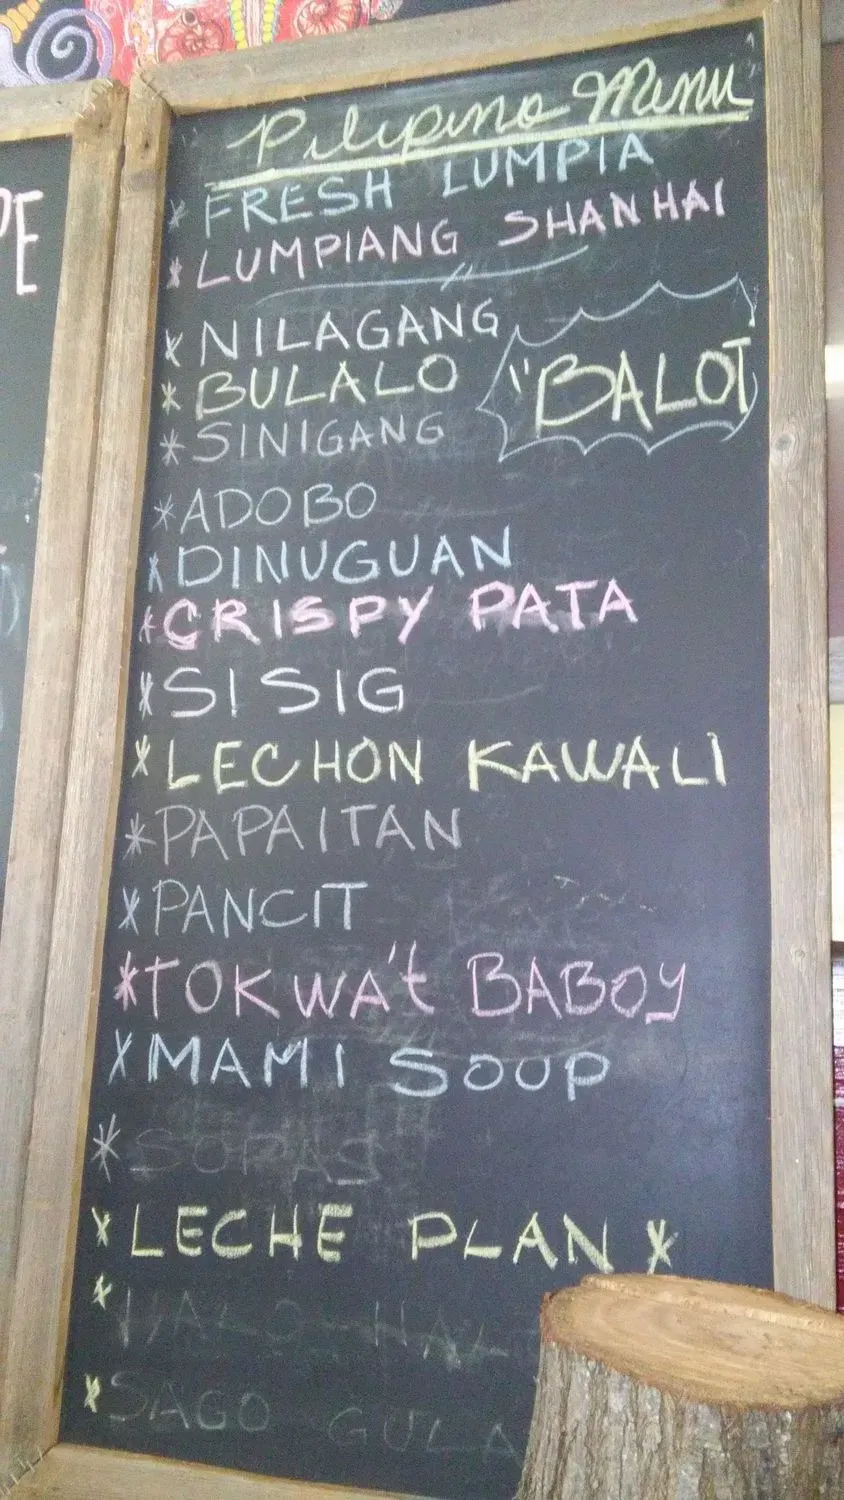 PE
Pilipino Menu
* FRESH LUMPIA
* LUMPIANG SHANHAI
* NILAGANG
* BULALO
"BALOT
* SINIGANG
* ADOBO
* DINUGUAN
* CRISPY PATA
* SISIG
* LECHON KAWALI
* PAPAITAN
* PANCIT
* TOKWA't BABOY
* MAMI SOUP
* SOPAS
* LECHE PLAN *
* HALO-HAL
* SAGO GULA